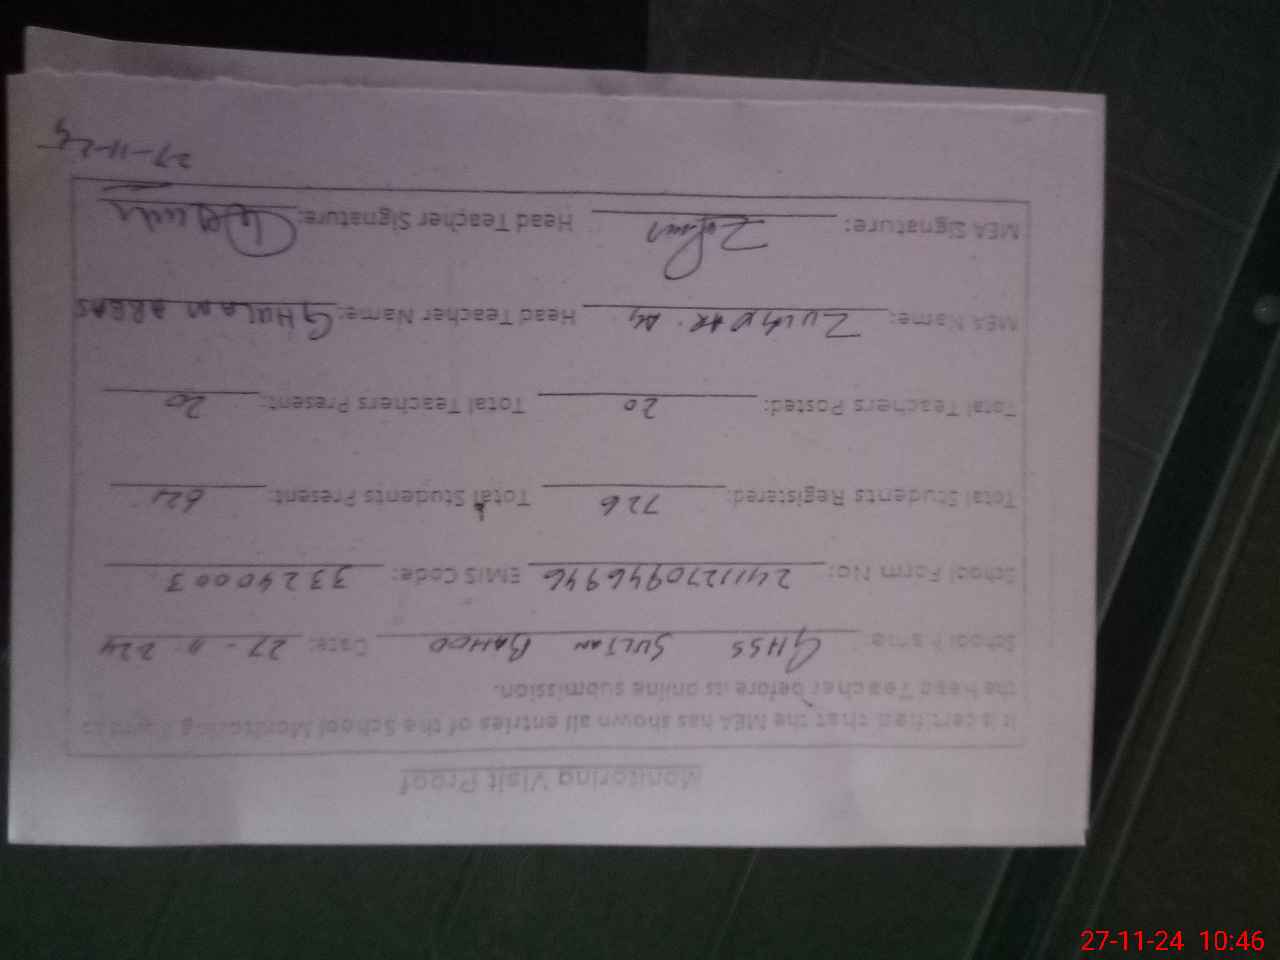 Monitoring Visit Proof
It is certified that the MEA has shown all entries of the School Monitoring
the head Teacher before its online submission.
School Name: GHSS SULTAN BAHOO Date: 27-11-2024
School Form No: 241127094646 EMIS Code: 33240003
Total Students Registered: 726 Total Students Present: 624
Total Teachers Posted: 20 Total Teachers Present: 20
MEA Name: Head Teacher Name: GHULAM ABBAS
MEA Signature: Head Teacher Signature:
27-11-24
27-11-24 10:46